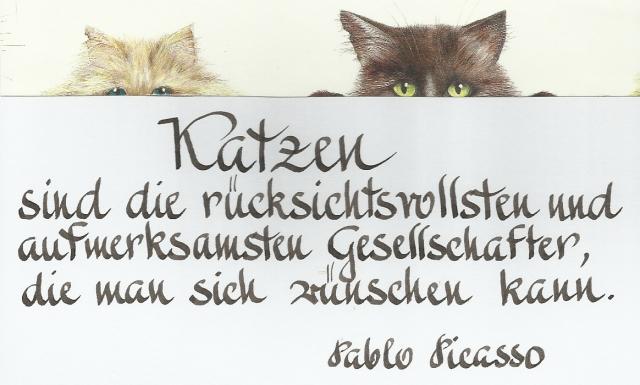 Katzen
sind die rücksichtsvollsten und
aufmerksamsten Gesellschafter,
die man sich wünschen kann.
Pablo Picasso